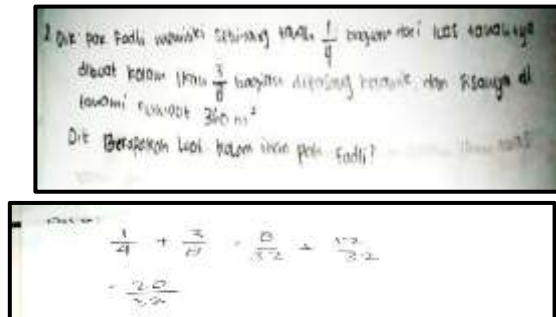 1 Dik pak Fadli memiliki sebidang tanah, 1/4 bagian dari luas tanahnya
dibuat kolam ikan 3/8 bagian dipasang keramik dan sisanya di
tanami rumput 360 m²
Dit Berapakah luas kolam ikan pak Fadli?
1/4 + 3/8 = 8/32 + 12/32
= 20/32